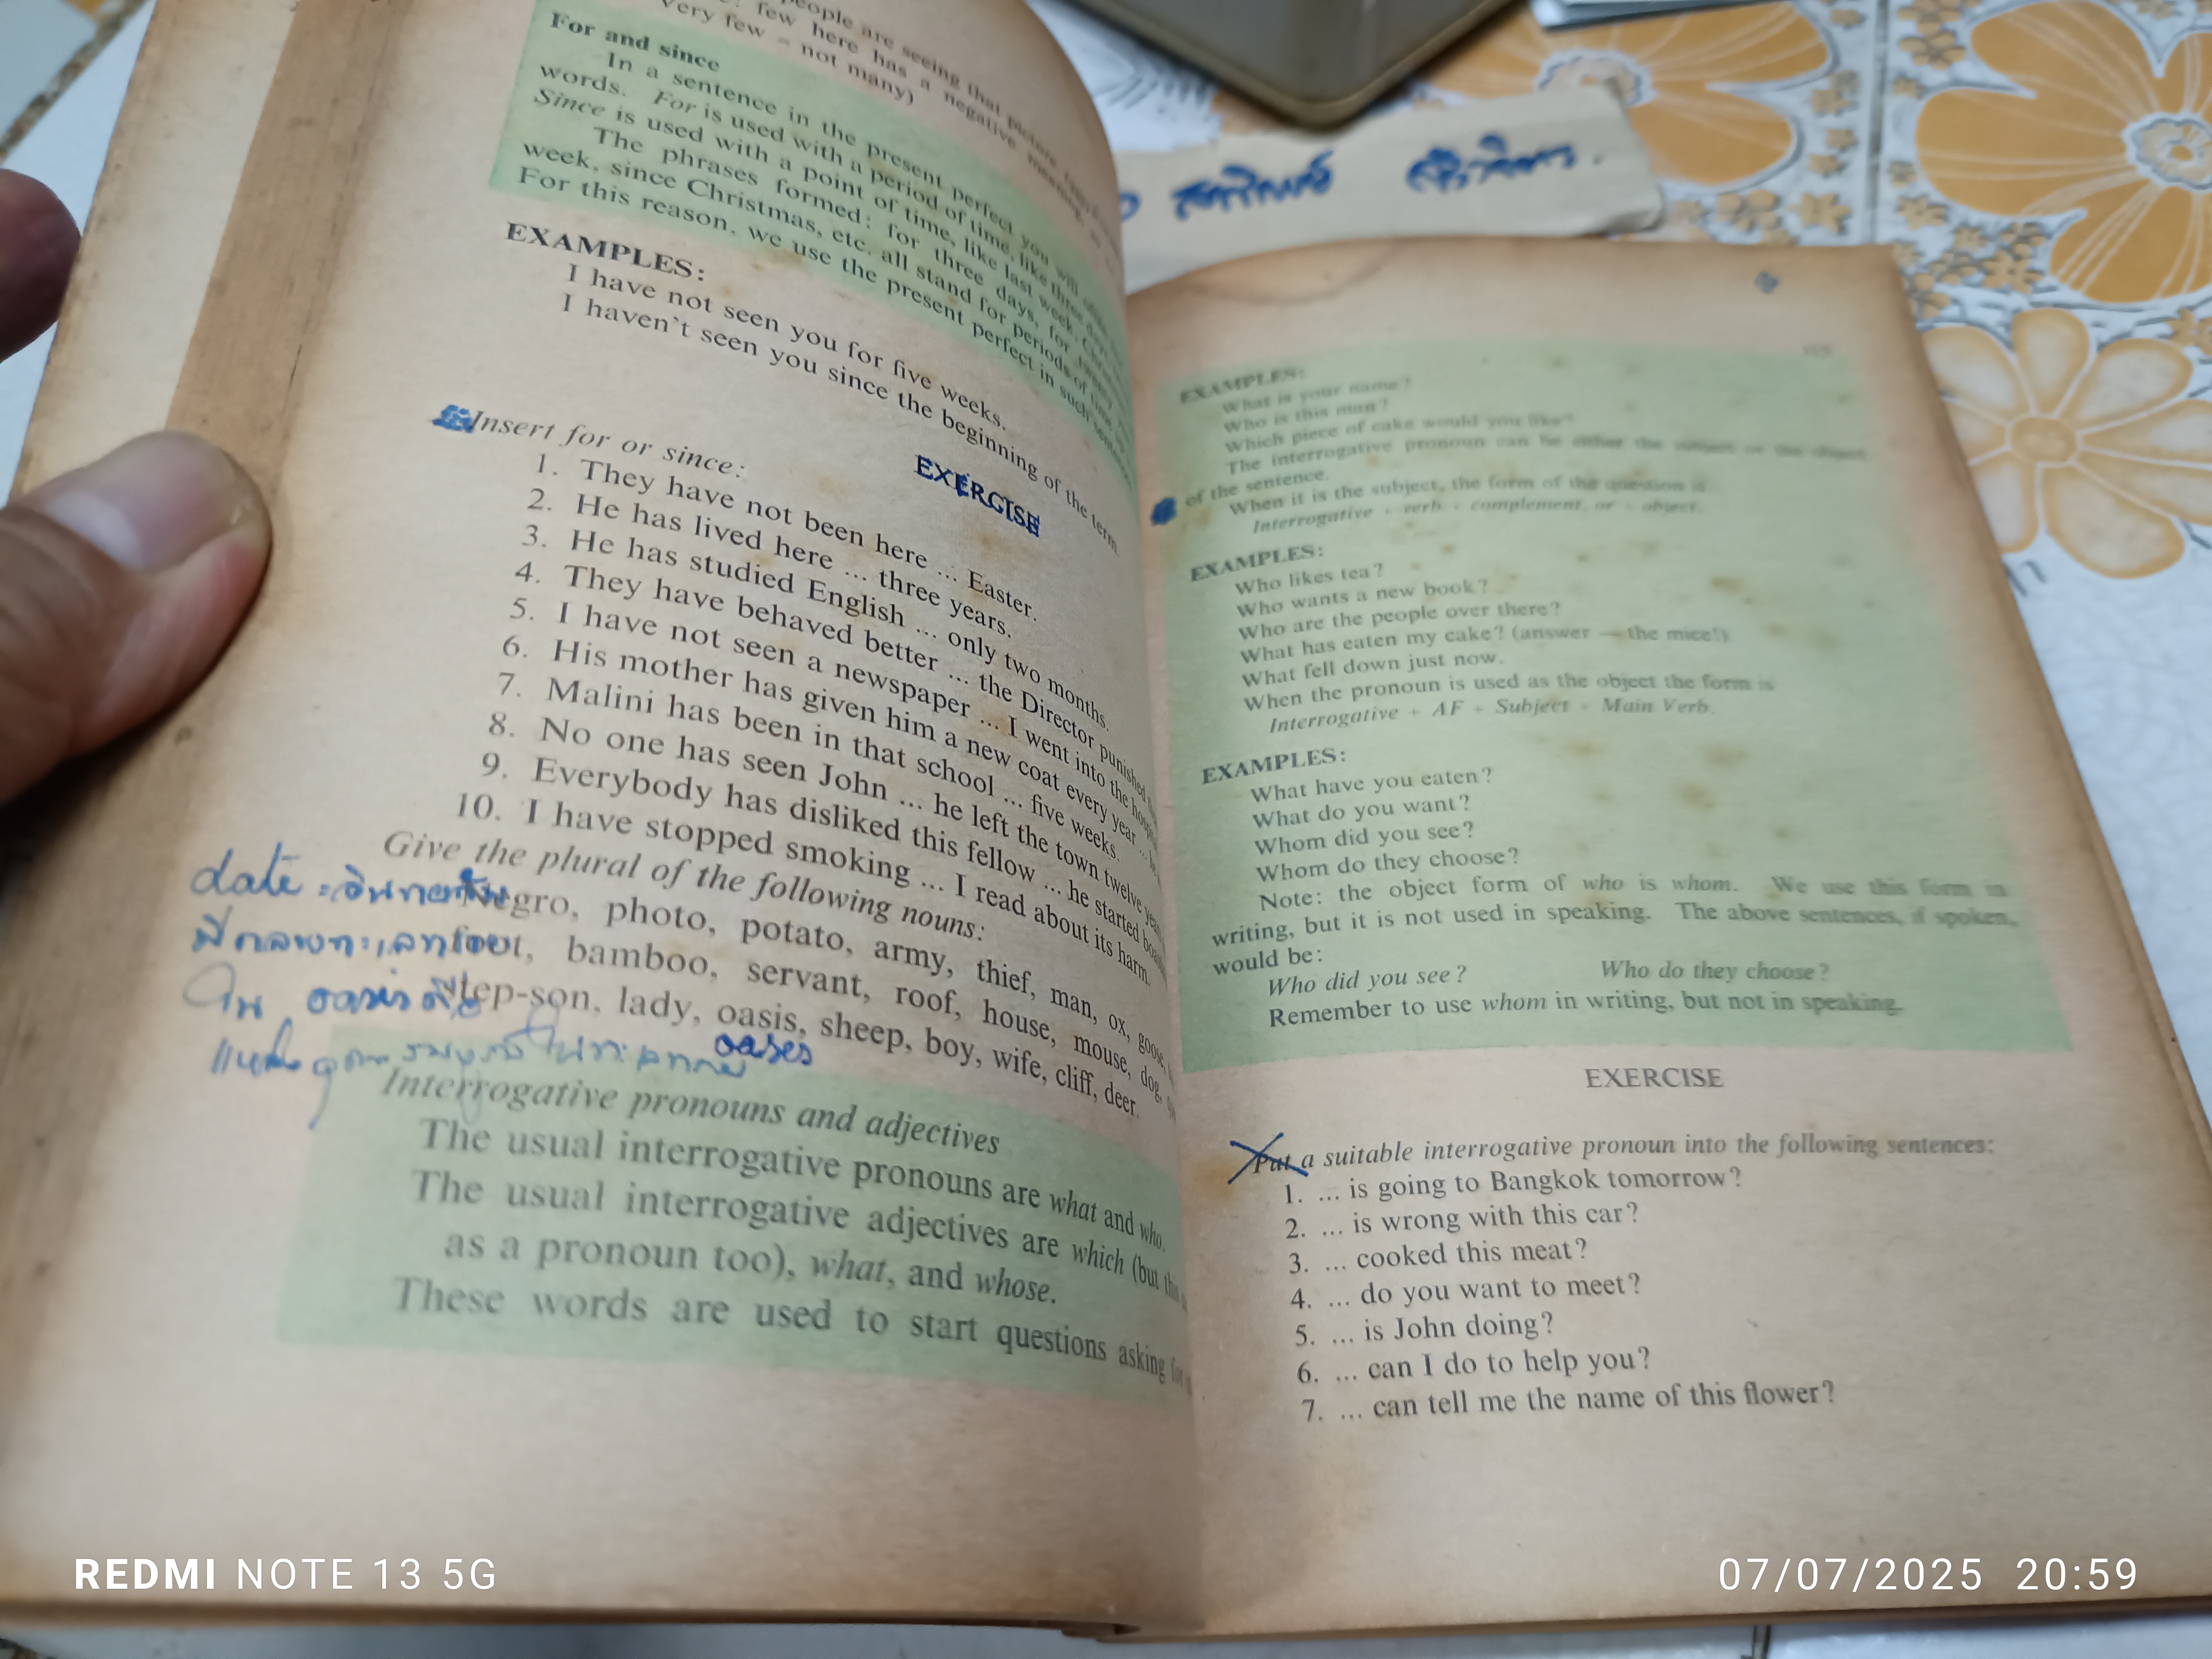 people are seeing that picture
few here has a negative meaning
very few = not many)
For and since
In a sentence in the present perfect you will
words. For is used with a period of time, like three
Since is used with a point of time, like last week,
The phrases formed: for three days, for
week, since Christmas, etc. all stand for periods of time
For this reason, we use the present perfect in such
EXAMPLES:
I have not seen you for five weeks.
I haven't seen you since the beginning of the term.
EXERCISE
Insert for or since:
1. They have not been here ... Easter.
2. He has lived here ... three years.
3. He has studied English ... only two months.
4. They have behaved better ... the Director punished
5. I have not seen a newspaper ... I went into the
6. His mother has given him a new coat every year ...
7. Malini has been in that school ... five weeks.
8. No one has seen John ... he left the town twelve
9. Everybody has disliked this fellow ... he started
10. I have stopped smoking ... I read about its harm.
Give the plural of the following nouns:
date
Negro, photo, potato, army, thief, man, ox, goose,
foot, bamboo, servant, roof, house, mouse, dog,
step-son, lady, oasis, sheep, boy, wife, cliff, deer.
oases
Interrogative pronouns and adjectives
The usual interrogative pronouns are what and who.
The usual interrogative adjectives are which (but
as a pronoun too), what, and whose.
These words are used to start questions asking for
EXAMPLES:
What is your name?
Who is this man?
Which piece of cake would you like?
The interrogative pronoun can be either the subject or the object
of the sentence.
When it is the subject, the form of the question is
Interrogative + verb + complement, or + object.
EXAMPLES:
Who likes tea?
Who wants a new book?
Who are the people over there?
What has eaten my cake? (answer — the mice!)
What fell down just now.
When the pronoun is used as the object the form is
Interrogative + AF + Subject + Main Verb.
EXAMPLES:
What have you eaten?
What do you want?
Whom did you see?
Whom do they choose?
Note: the object form of who is whom. We use this form in
writing, but it is not used in speaking. The above sentences, if spoken,
would be:
Who did you see? Who do they choose?
Remember to use whom in writing, but not in speaking.
EXERCISE
Put a suitable interrogative pronoun into the following sentences:
1. ... is going to Bangkok tomorrow?
2. ... is wrong with this car?
3. ... cooked this meat?
4. ... do you want to meet?
5. ... is John doing?
6. ... can I do to help you?
7. ... can tell me the name of this flower?
REDMI NOTE 13 5G
07/07/2025 20:59